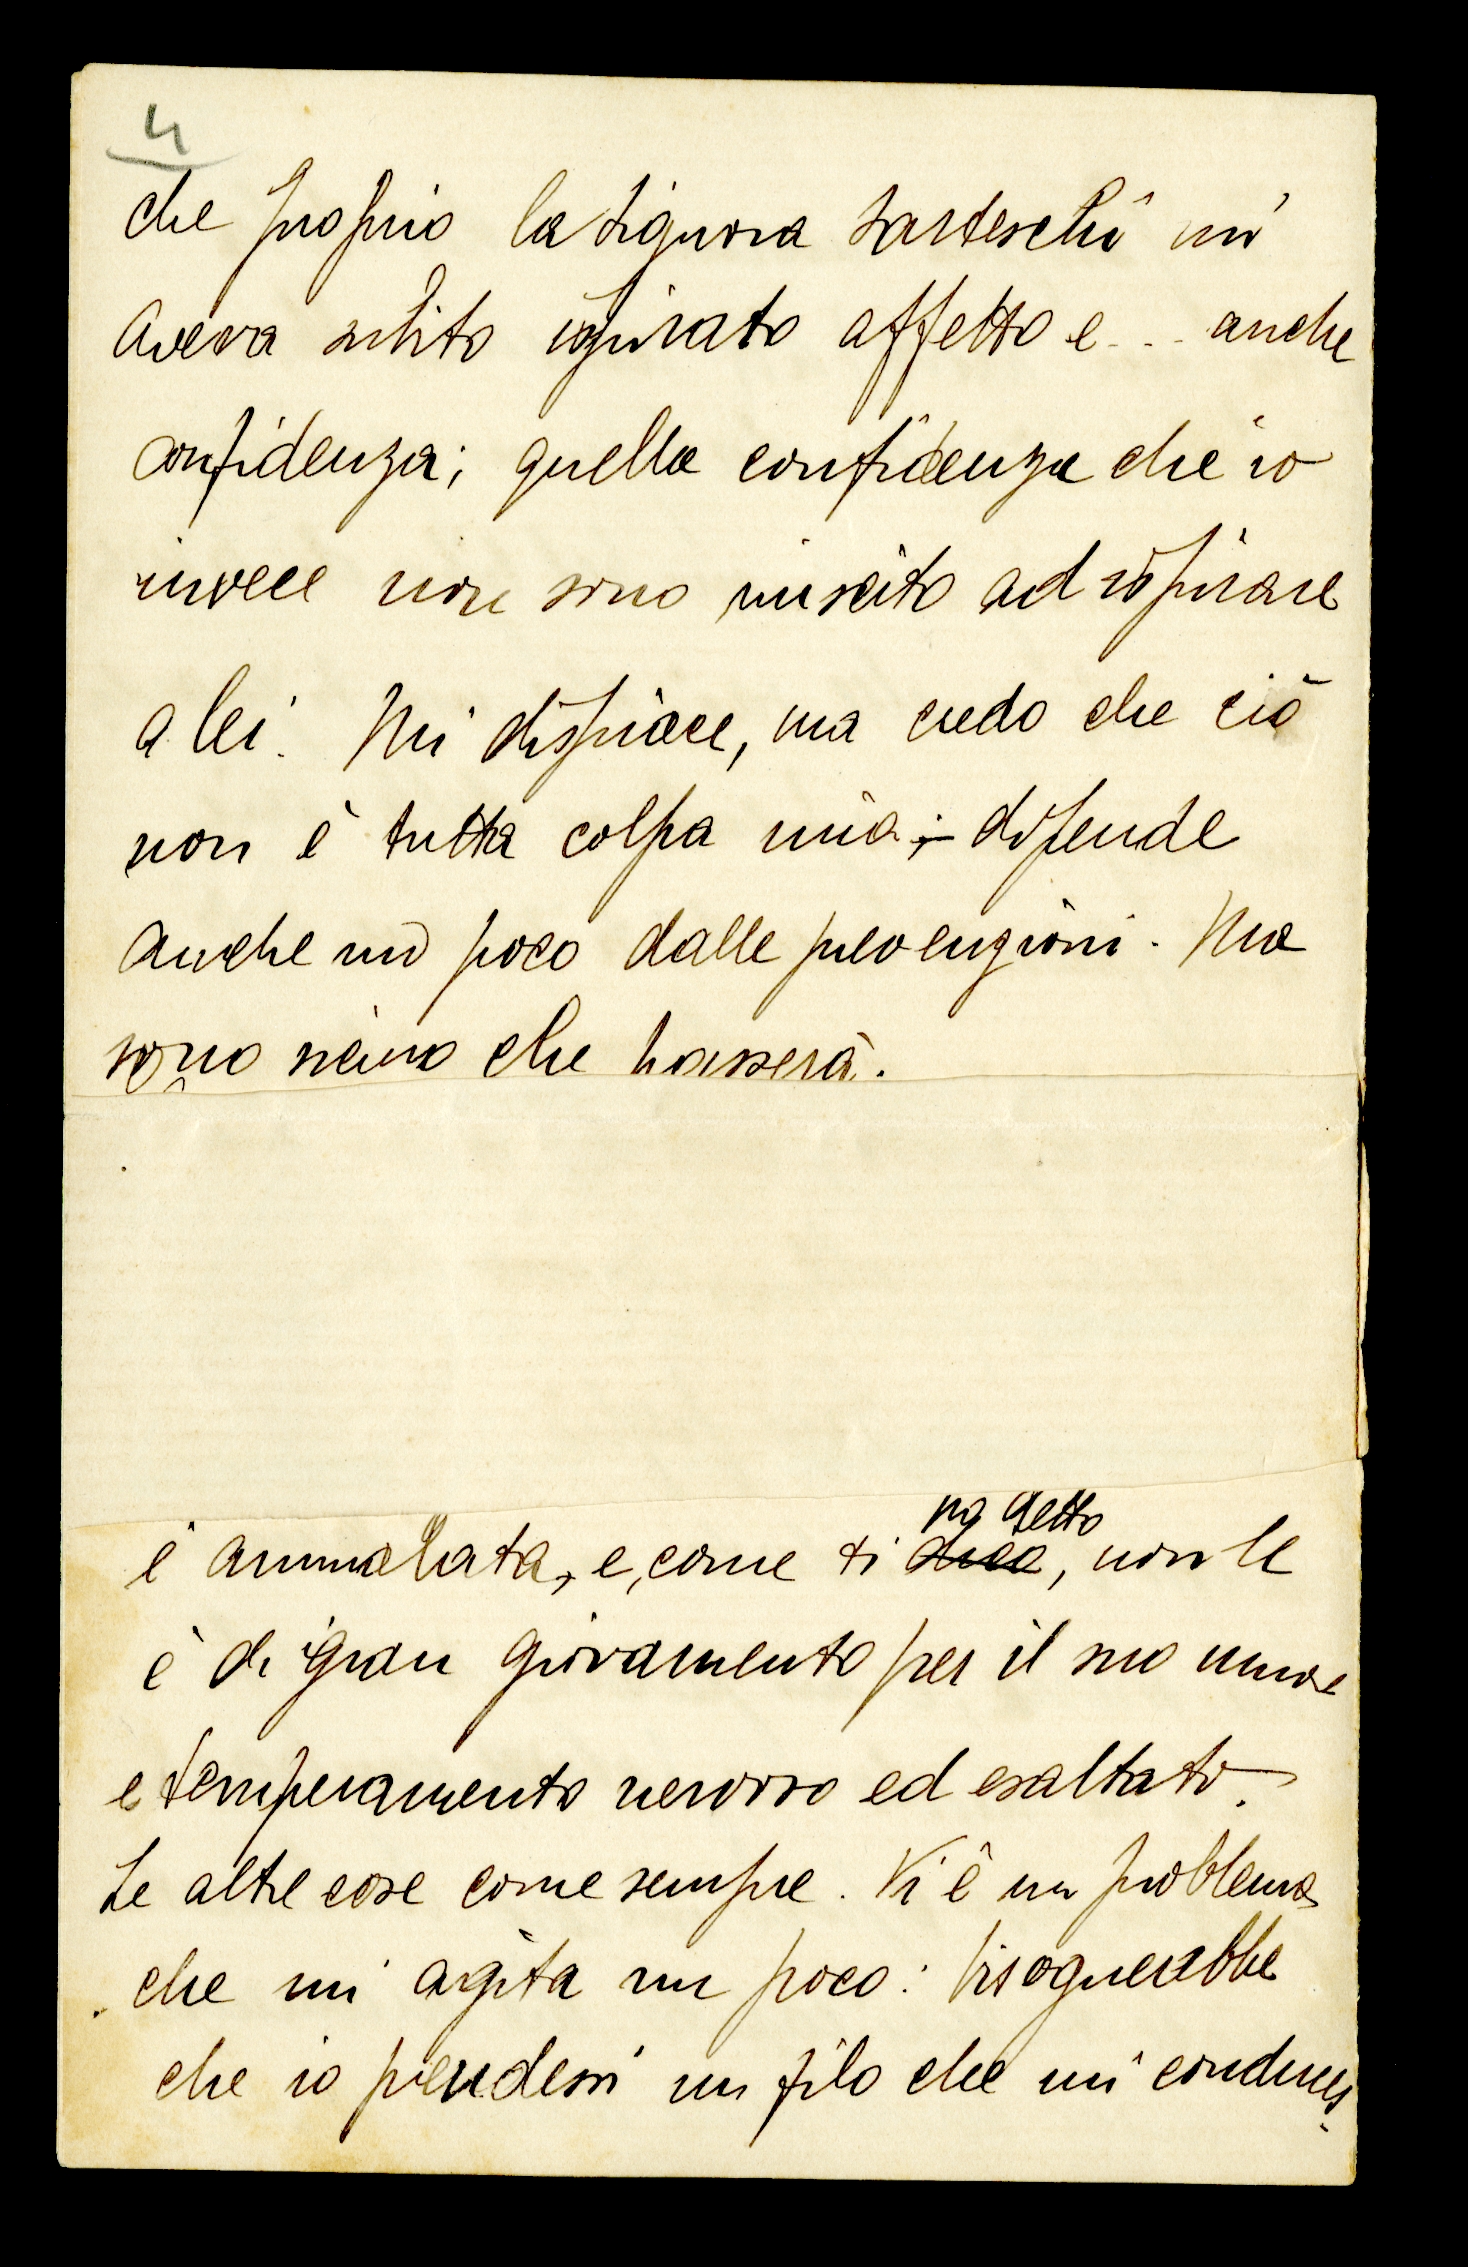 4
che proprio la Signora Sarteschi mi
aveva subito ispirato affetto e... anche
confidenza; quella confidenza che io
invece non sono riuscito ad ispirare
a lei. Mi dispiace, ma credo che ciò
non è tutta colpa mia; dipende
anche un poco dalle prevenzioni. Ma
sono sicuro che passerà.
è ammalata, e, come ti dico, non le
ho detto
è di gran giovamento per il suo umore
e temperamento nervoso ed esaltato.
Le altre cose come sempre. Vi è un problema
che mi agita un poco: bisognerebbe
che io prendessi un filo che mi conduces